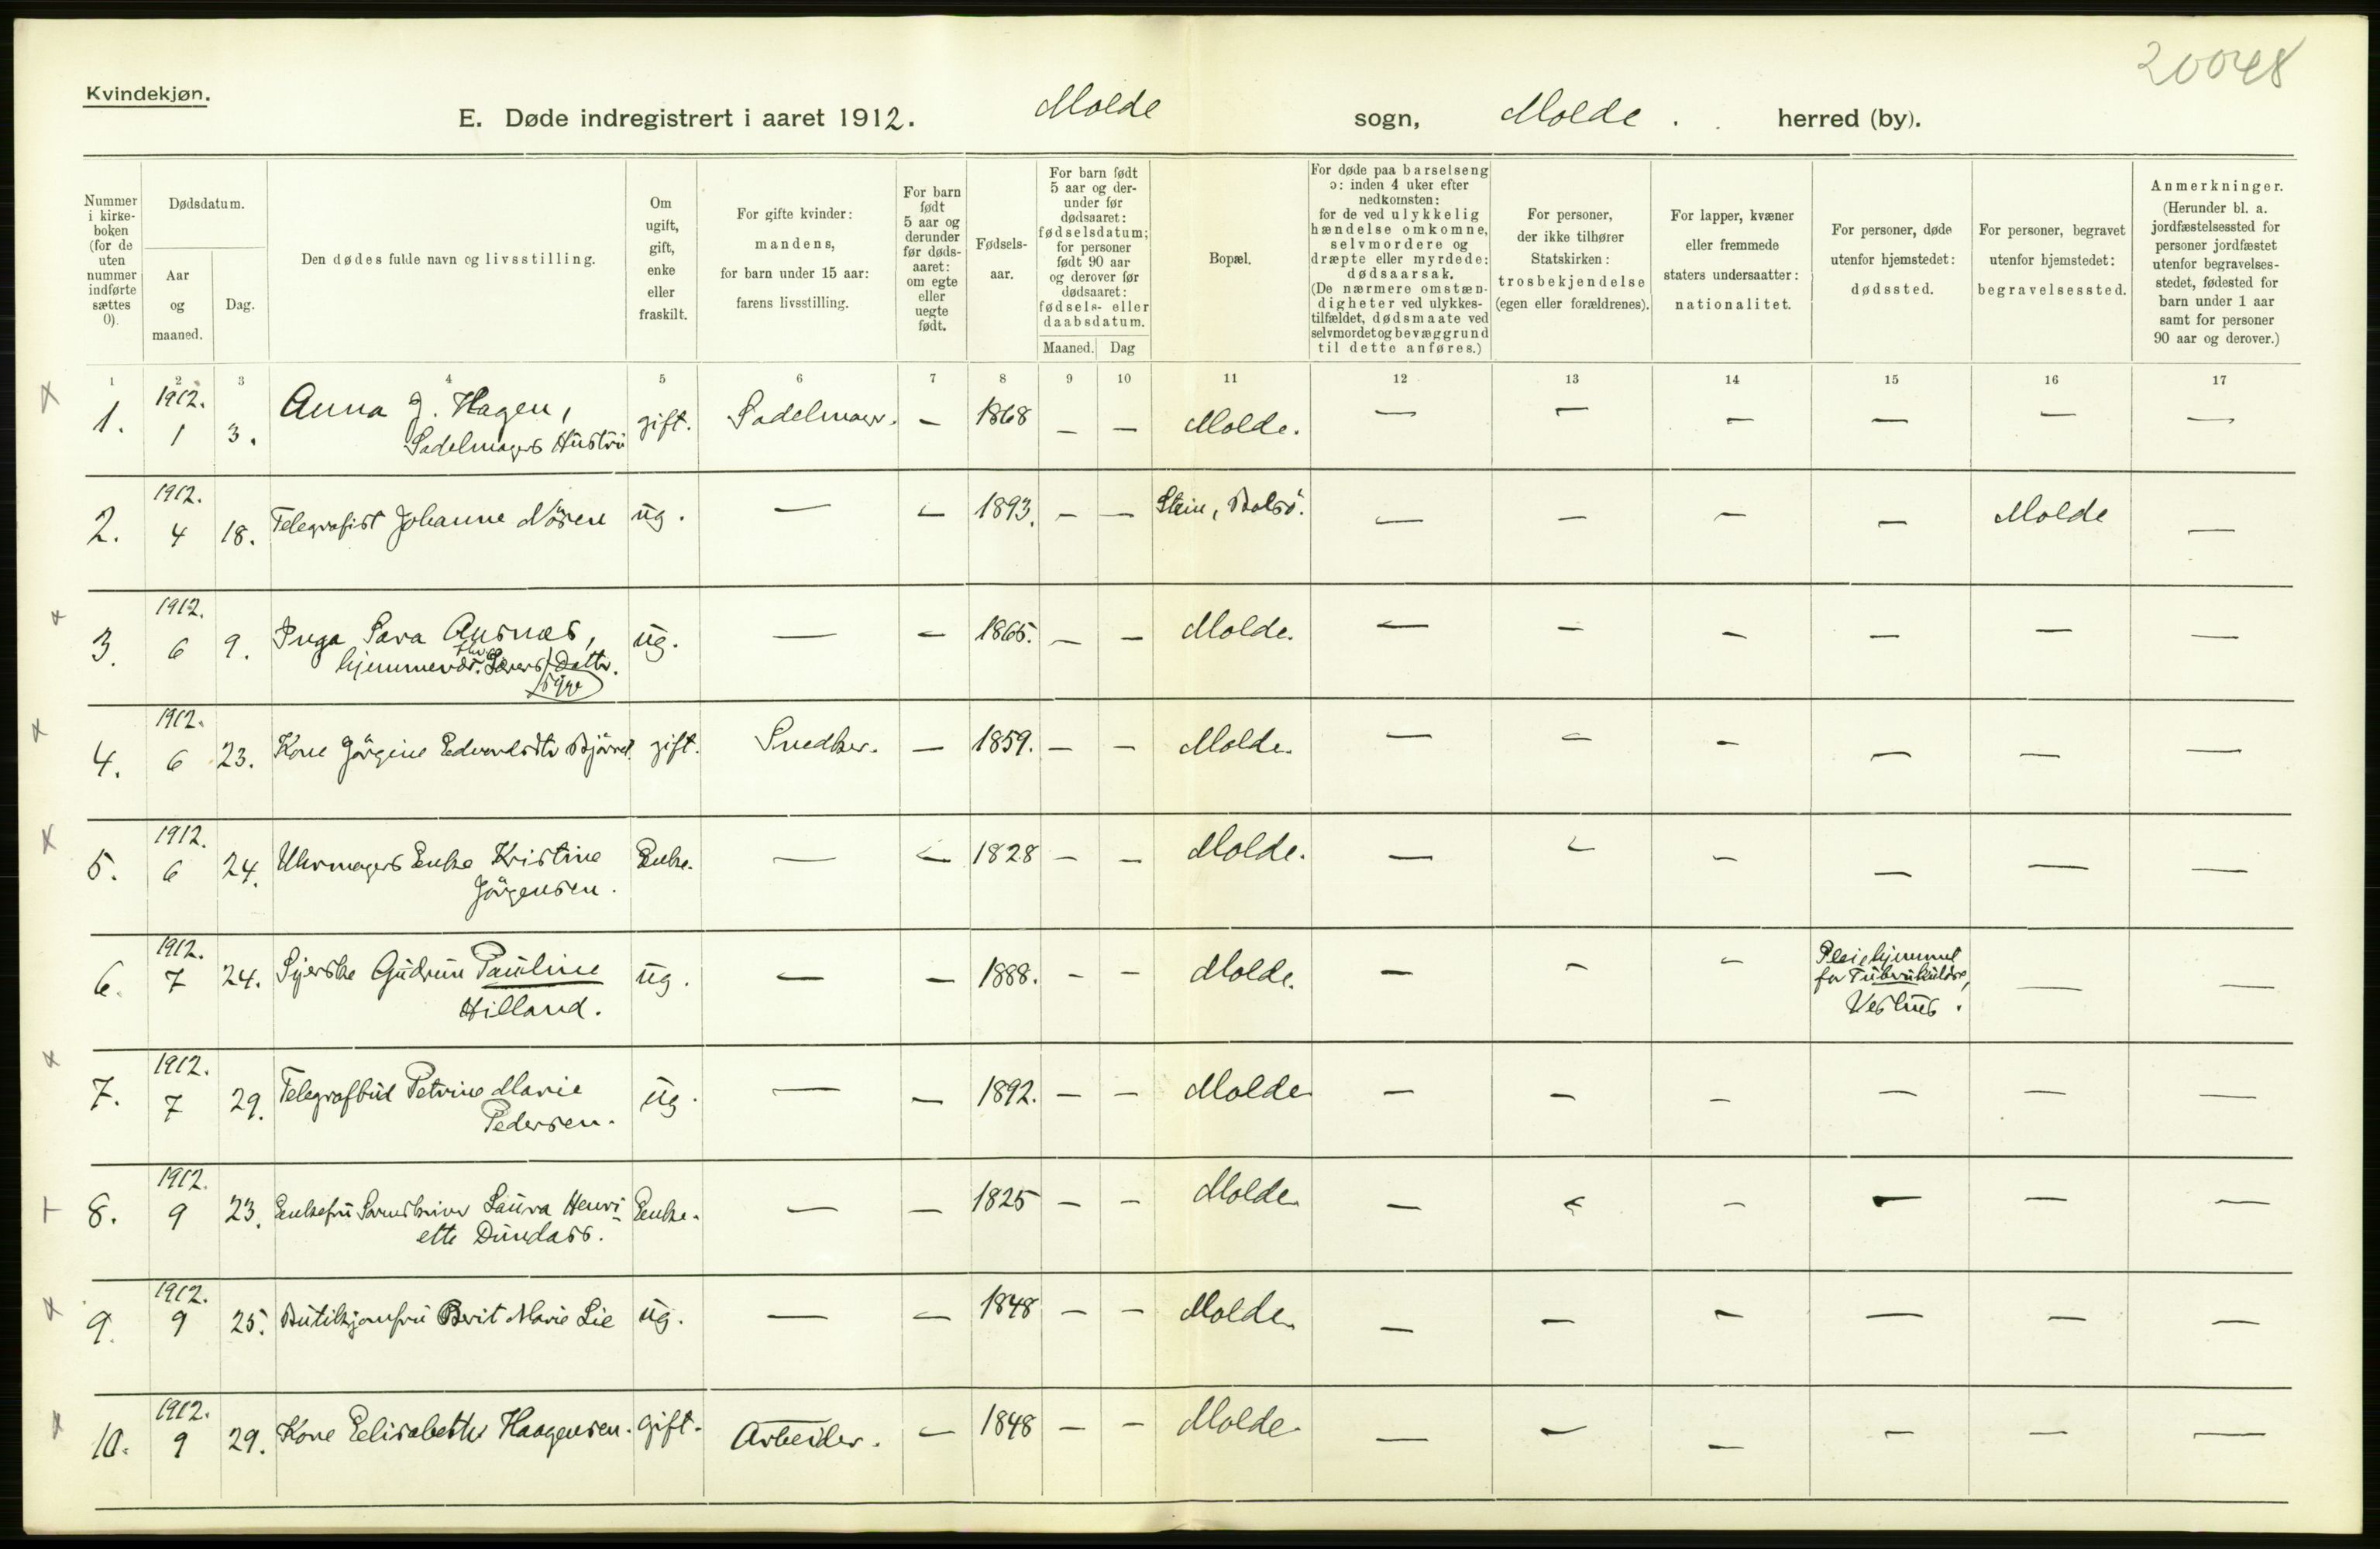 20048
Kvindekjøn.
E. Døde indregistrert i aaret 1912. Molde sogn, Molde. herred (by).
Nummer i kirkeboken (for de uten nummer indførte sættes 0).
Dødsdatum.
Aar og maaned.
Dag.
Den dødes fulde navn og livsstilling.
Om ugift, gift, enke eller fraskilt.
For gifte kvinder: mandens, for barn under 15 aar: farens livsstilling.
For barn født 5 aar og derunder før dødsaaret: om egte eller uegte født.
Fødselsaar.
For barn født 5 aar og derunder før dødsaaret: fødselsdatum; for personer født 90 aar og derover før dødsaaret: fødsels- eller daabsdatum.
Maaned. Dag
Bopæl.
For døde paa barselseng ɔ: inden 4 uker efter nedkomsten: for de ved ulykkelig hændelse omkomne, selvmordere og dræpte eller myrdede: dødsaarsak. (De nærmere omstændigheter ved ulykkestilfældet, dødsmaate ved selvmordet og bevæggrund til dette anføres.)
For personer, der ikke tilhører Statskirken: trosbekjendelse (egen eller forældrenes).
For lapper, kvæner eller fremmede staters undersaatter: nationalitet.
For personer, døde utenfor hjemstedet: dødssted.
For personer, begravet utenfor hjemstedet: begravelsessted.
Anmerkninger. (Herunder bl. a. jordfæstelsessted for personer jordfæstet utenfor begravelsesstedet, fødested for barn under 1 aar samt for personer 90 aar og derover.)
1 2 3 4 5 6 7 8 9 10 11 12 13 14 15 16 17
1. 1912. 1 3. Anna J. Hagen, Sadelmagers Hustru gift. Sadelmager. — 1868 — — Molde. — — — — — —
2. 1912. 4 18. Telegrafist Johanne Nören ug. — — 1893. — — Stein, Bolsö. — — — — Molde —
3. 1912. 6 9. Inga Sara Ausnæs, hjemmevær. Datter ug. — — 1865. — — Molde. — — — — — —
4. 1912. 6 23. Kone Jörgine Edvardsdtr gift. Snedker. — 1859. — — Molde. — — — — — —
5. 1912. 6 24. Uhrmagers Enke Kristine Jörgensen. Enke. — — 1828 — — Molde. — — — — — —
6. 1912. 7 24. Syerske Gudrun Pauline Hilland. ug. — — 1888. — — Molde. — — — Pleiehjemmet for Tuberkuløse, Veshus. — —
7. 1912. 7 29. Telegrafbud Petrine Marie Pedersen. ug. — — 1892. — — Molde — — — — — —
8. 1912. 9 23. Enkefru Sorenskriver Laura Henriette Dundass. Enke. — — 1825 — — Molde — — — — — —
9. 1912. 9 25. Butikjomfru Berit Marie Lie ug. — — 1848 — — Molde — — — — — —
10. 1912. 9 29. Kone Elisabeth Haagensen. gift. Arbeider. — 1848 — — Molde — — — — — —